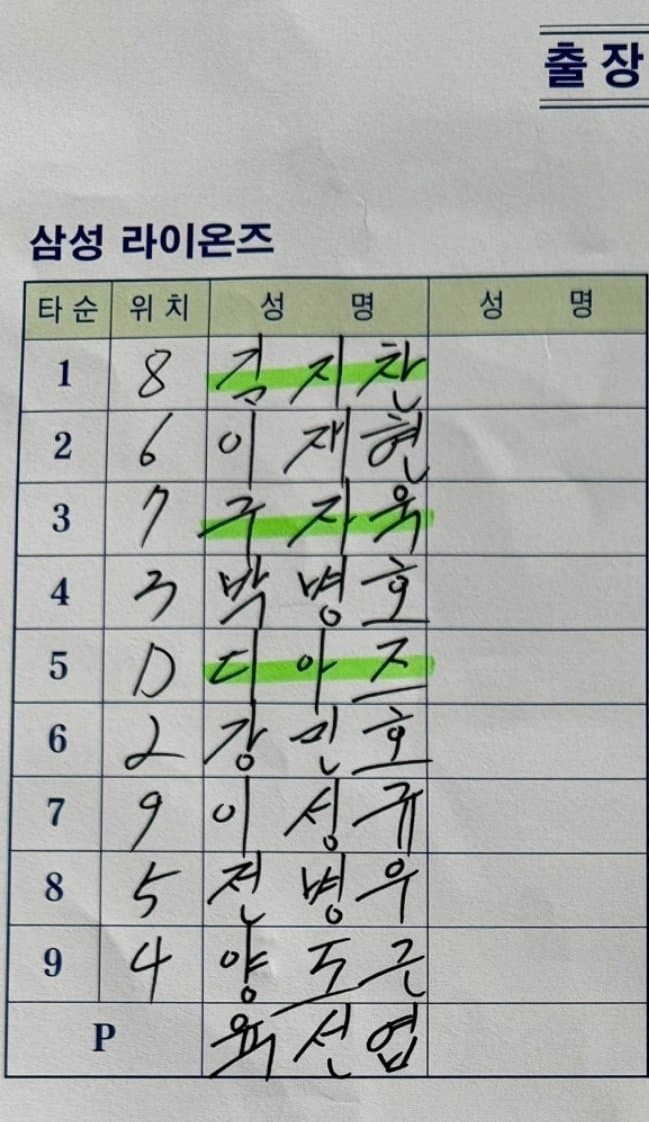 출 장
삼성 라이온즈
타순 위치 성 명 성 명
1 8 김지찬
2 6 이재현
3 7 구자욱
4 3 박병호
5 D 디아즈
6 2 강민호
7 9 이성규
8 5 전병우
9 4 양도근
P 육선엽